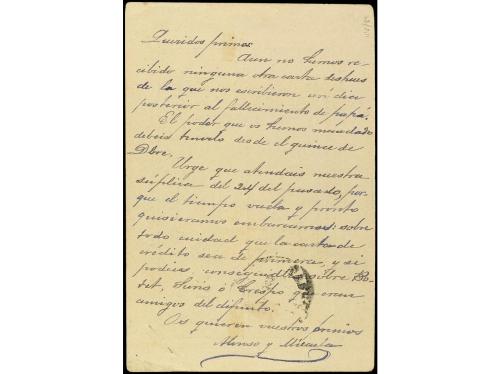 Queridos primos:
Aun no hemos re-
cibido ninguna otra carta despues
de la que nos escribieron un dia
posterior al fallecimiento de papá.
El poder que os hemos mandado
debeis tenerlo desde el quince de
Dbre.
Urge que atendais nuestra
súplica del 24 del pasado, por-
que el tiempo vuela y pronto
quisieramos embarcarnos: sobre
todo cuidad que la carta de
crédito sea de primera, y si
podeis, conseguidla sobre
Crespo que eran
amigos del difunto.
Os quieren vuestros primos
Alonso y Micaela